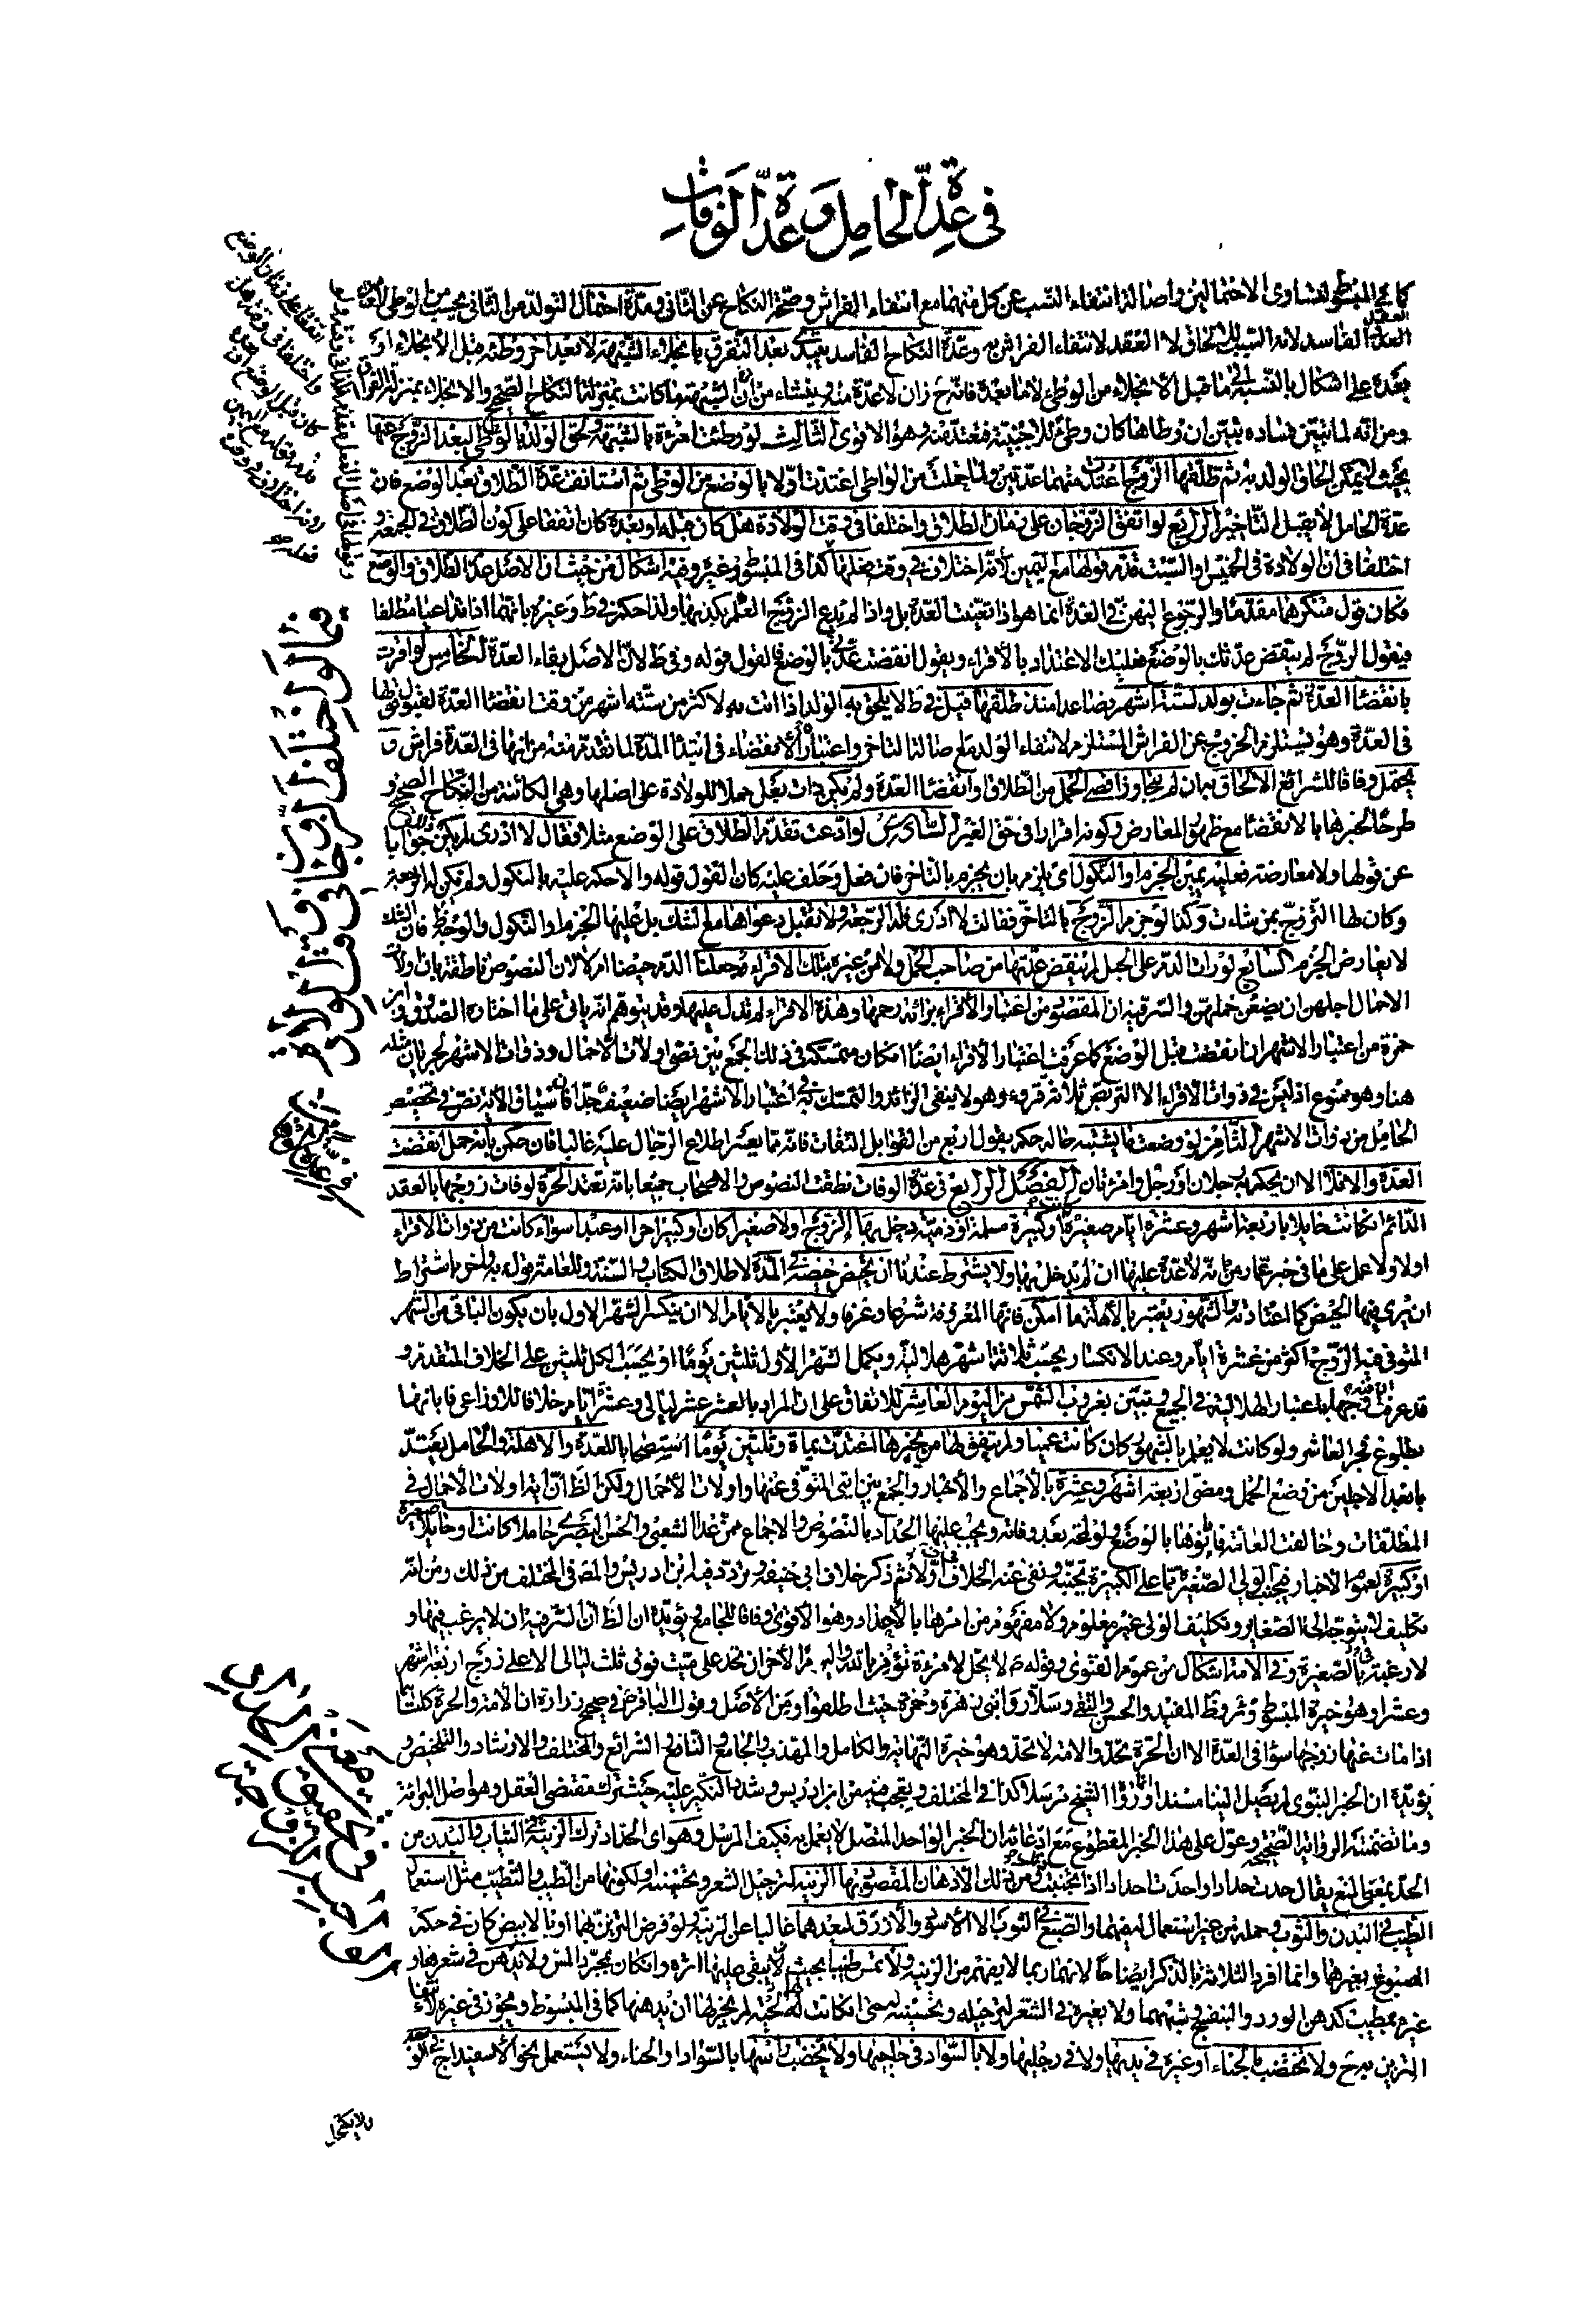 في عدة الحامل وعدة الوفات
كما في المبسوط لتساوي الاحتمالين واصالة انتفاء النسب عن كل منهما مع انتفاء الفراش وصحة النكاح عن الثاني ومدة احتمال التولد من الثاني يحسب من الوطي
الفاسد لانه السبب للالحاق لا العقد لانتفاء الفراش به وعدة النكاح الفاسد بعد التفرق بانجلاء الشبهة لا بعد اخر وطئه قبل الانجلاء او
بعده على اشكال بالنسبة الى ما قبل الانجلاء من الوطئ لا ما بعده فانه زان لا عدة منه وينشاء من ان الشبهة كانت بمنزلة النكاح الصحيح والانجلاء بمنزلة الطلاق
ومن انه لما تبين فساده تبين ان وطأها كان وطئ للاجنبية فتعتد منه وهو الاقوى الثالث لو وطئت امرئة بالشبهة ولحق الولد بالواطي لبعد الزوج عنها
بحيث لا يمكن الحاق الولد به ثم طلقها الزوج اعتدت منهما عدتين ولما حملت من الواطي اعتدت اولا بالوضع من الوطي ثم استانفت عدة الطلاق بعد الوضع فان
عدة الحامل لا يقبل التاخير الرابع لو اتفق الزوجان على زمان الطلاق واختلفا في وقت الولادة هل كان قبله او بعده كان اتفقا على كون الطلاق في الجمعة و
اختلفا في ان الولادة في الخميس او السبت قدم قولها مع اليمين لانه اختلاف في وقت فعلها كذا في المبسوط وغيره وفيه اشكال من حيث ان الاصل عدم الطلاق والوضع
فكان قول منكرهما مقدما والرجوع اليهن في العدة انما هو اذا تعينت العدة بل واذا لم يدع الزوج العلم بكذبها ولذا حكم في ط وغيره بانهما اذا تداعيا مطلقا
فيقول الزوج لم ينقض عدتك بالوضع فعليك الاعتداد بالاقراء ويقول انقضت عدتي بالوضع فالقول قوله وفي ط لان الاصل بقاء العدة الخامس لو اقرت
بانقضاء العدة ثم جاءت بولد لستة اشهر فصاعدا منذ طلقها قيل في ط لا يلحق به الولد اذا اتت به لاكثر من ستة اشهر من وقت انقضاء العدة لقبول قولها
في العدة وهو يستلزم الخروج عن الفراش المستلزم لانتفاء الولد مع اصالة التاخر واعتبار الانقضاء في ابتداء المدة لما تقدم منه من انها في العدة فراش و
يحتمل وفاقا للشرائع الالحاق به ان لم يتجاوز اقصى الحمل من الطلاق وانقضاء العدة ولم يكن ذات بعل حملا للولادة على اصلها وهي الكائنة من النكاح الصحيح و
طرحا لخبرها بالانقضاء مع ظهور المعارض وكونه اقرارا في حق الغير السادس لو ادعت تقدم الطلاق على الوضع مثلا فقال لا ادري لم يكن جوابا
عن قولها ولا معارضة فعليه يمين الجزم او النكول اي يلزم بان يجزم بالتاخر فان فعل وحلف عليه كان القول قوله والا حكم عليه بالنكول ولم تكن له الرجعة
وكان لها التزويج بمن شاءت وكذا لو جزم الزوج بالتاخر فقالت لا ادري فله الرجعة ولا تقبل دعواها مع الشك بل عليها الجزم او النكول والوجه ظ فان الشك
لا يعارض الجزم السابع لو رات الدم على الحبل لم ينقض عدتها من صاحب الحمل ولا من غيره بتلك الاقراء وجعلنا الدم حيضا ام لا لان النصوص ناطقة بان اولات
الاحمال اجلهن ان يضعن حملهن والسر فيه ان المقصود من اعتبار الاقراء برائة رحمها وهذه الاقراء لم تدل عليها وقد يتوهم انه باق على ما اختاره الصدوق وابن
حمزة من اعتبار الاشهر ان انقضت قبل الوضع كما عرفت اعتبار الاقراء ايضا امكان متمسكه في ذلك الجمع بين نصي اولات الاحمال وذوات الاشهر لجريان مثله
هنا وهو ممنوع اذ ليس في ذوات الاقراء الا التربص ثلاثة قروء وهو لا ينفي الزائد والتمسك به في اعتبار الاشهر ايضا ضعيف جدا فان سياق الاية نص في تخصيص
الحامل من ذوات الاشهر الثامن لو وضعت ما يشتبه حاله حكم بقول اربع من القوابل الثقات فانه مما يعسر اطلاع الرجال عليه غالبا فان حكمن بانه حمل انقضت
العدة والا فلا الا ان يحكم به رجلان او رجل وامرئتان الفصل الرابع في عدة الوفات نطقت النصوص والاصحاب جميعا بانه تعتد الحرة لوفات زوجها بالعقد
الدائم ان كانت حايلا باربعة اشهر وعشرة ايام صغيرة او كبيرة مسلمة او ذمية دخل بها الزوج اولا صغيرا كان او كبيرا حرا او عبدا سواء كانت من ذوات الاقراء
اولا ولا عمل على ما في خبر عمار من انه لا عدة عليها ان لم يدخل بها ولا يشترط عندنا ان تحيض حيضة في المدة لاطلاق الكتاب والسنة وللعامة قول به واخر باشتراط
ان ترى فيها الحيض كما اعتادته والشهور يعتبر بالاهلة ما امكن فانها المعروفة شرعا وعرفا ولا يعتبر بالايام الا ان ينكسر الشهر الاول بان يكون الباقي من الشهر
المتوفى فيه الزوج اكثر من عشرة ايام وعند الانكسار يحسب ثلاثة اشهر هلالية ويكمل الشهر الاول ثلثين يوما او يحسب الكل ثلثين على الخلاف المتقدم و
قد عرفت وجهها باعتبار الهلالية في الجميع وتبين بغروب الشمس من اليوم العاشر للاتفاق على ان المراد بالعشر عشر ليالي وعشرة ايام خلافا للاوزاعي فابانها
بطلوع فجر العاشر ولو كانت لا يعلم بالشهور كان كانت عميا ولم يتفق لها من يخبرها اعتدت بمائة وثلثين يوما استصحابا للعدة والاهلة والحامل يعتد
بابعد الاجلين من وضع الحمل ومضي اربعة اشهر وعشرة بالاجماع والاخبار والجمع بين ايتي المتوفى عنها واولات الاحمال ولكن الظ ان اية اولات الاحمال في
المطلقات وخالفت العامة فابانوها بالوضع ولو لحظة بعد وفاته ويجب عليها الحداد بالنصوص والاجماع ممن عدا الشعبي والحسن البصري حاملا كانت او حايلا صغيرة
او كبيرة لعموم الاخبار فيجنب الولي الصغيرة مما على الكبيرة تجنبه ونفي عنه الخلاف في ف اولا ثم ذكر خلاف ابي حنيفه وتردد فيه ابن ادريس والمصنف في المختلف من ذلك ومن انه
تكليف لا يتوجه الى الصغاير وتكليف الولي غير معلوم ولا مفهوم من امرها بالاحداد وهو الاقوى وفاقا للجامع ويؤيده ان الظ ان السر فيه ان لا يرغب فيها و
لا رغبة في الصغيرة وفي الامة اشكال من عموم الفتوى وقوله ص لا يحل لامرئة تؤمن بالله واليوم الاخر ان تحد على ميت فوق ثلث ليالي الا على زوج اربعة اشهر
وعشرا وهو خيرة المبسوط وئر وظ المفيد والحسن والتقي وسلار وابني زهرة وحمزة حيث اطلقوا ومن الاصل وقول الباقر في صحيح زرارة ان الامة والحرة كلتاهما
اذا مات عنها زوجها سواء في العدة الا ان الحرة تحد والامة لا تحد وهو خيرة النهاية والكامل والمهذب والجامع والنافع والشرائع والمختلف والارشاد والتلخيص و
يؤيده ان الخبر النبوي لم يصل الينا مسندا وانما رواه الشيخ مرسلا كذا في المختلف ويتعجب فيه من ابن ادريس وشدد النكير عليه حيث ترك مقتضى العقل وهو اصل البرائة
وما تضمنته الرواية الصحيحة وعول على هذا الخبر المقطوع مع ادعائه ان الخبر الواحد المتصل لا يعمل به فكيف المرسل وهو اي الحداد ترك الزينة في الثياب والبدن من
الحد بمعنى المنع يقال حدت حدادا واحدت احدادا اذا اجتنبت ومن ذلك الادهان المقصود بها الزينة كترجيل الشعر وتحسينه او لكونها من الطيب والتطيب مثل استعمال
الطيب في البدن والثوب وحمله من غير استعمال فيهما والصبغ في الثوب الا الاسود والازرق لبعدهما غالبا عن الزينة ولو فرض التزين بهما او بالابيض كان في حكم
المصبوغ بغيرها وانما افرد الثلاثة بالذكر ايضاحا لانهما ربما لا يفهم من الزينة ولا تمس طيبا بحيث يبقى عليها اثره وان كان بمجرد المس ولا تدهن في شعرها و
غيره بمطيب كدهن الورد والبنفسج وشبههما ولا بغيره في الشعر لترجيله وتحسينه حتى ان كانت لها لحية لم يجز لها ان يدهنها كما في المبسوط ويجوز في غيره لانتفاء
التزين به ح ولا تختضب بالحناء او غيره في يديها ولا في رجليها ولا بالسواد في حاجبيها ولا يخضب راسها بالسواد او الحناء ولا يستعمل نحو الاسفيداج في الوجه
ولا يكتحل
فيما لو اختلف الزوجان في وقت الولادة